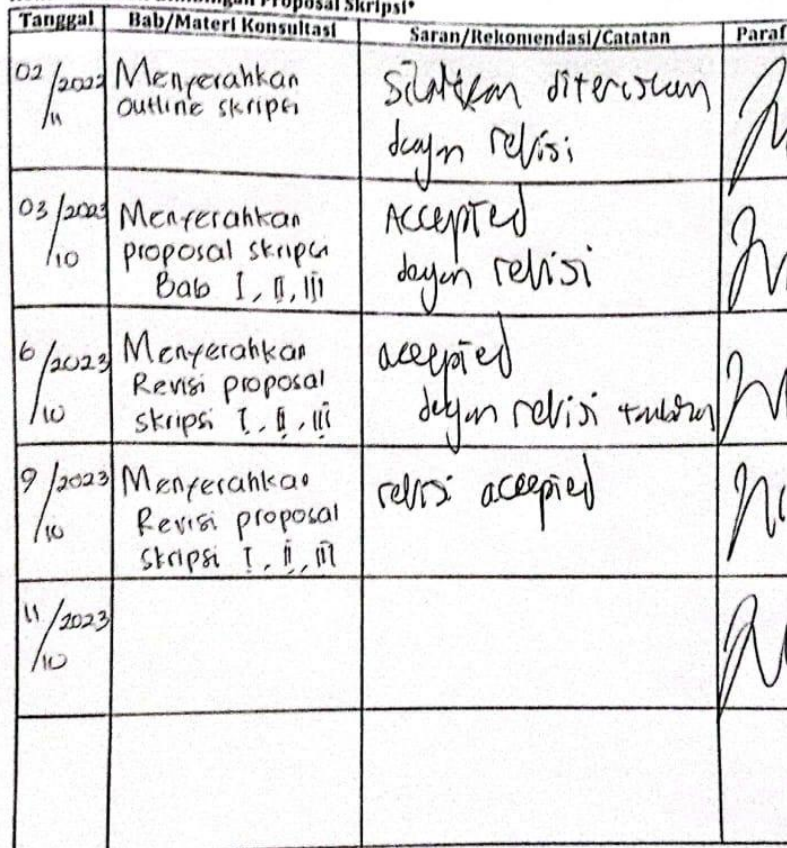 Proposal Skripsi*
Tanggal Bab/Materi Konsultasi Saran/Rekomendasi/Catatan Paraf
02/2022
11
Menyerahkan
Outline skripsi
Silahkan diteruskan
dengan revisi
03/2023
10
Menyerahkan
proposal skripsi
Bab I, II, III
Accepted
dengan revisi
6/2023
10
Menyerahkan
Revisi proposal
skripsi I, II, III
accepted
dengan revisi
9/2023
10
Menyerahkan
Revisi proposal
skripsi I, II, III
revisi accepted
11/2023
10